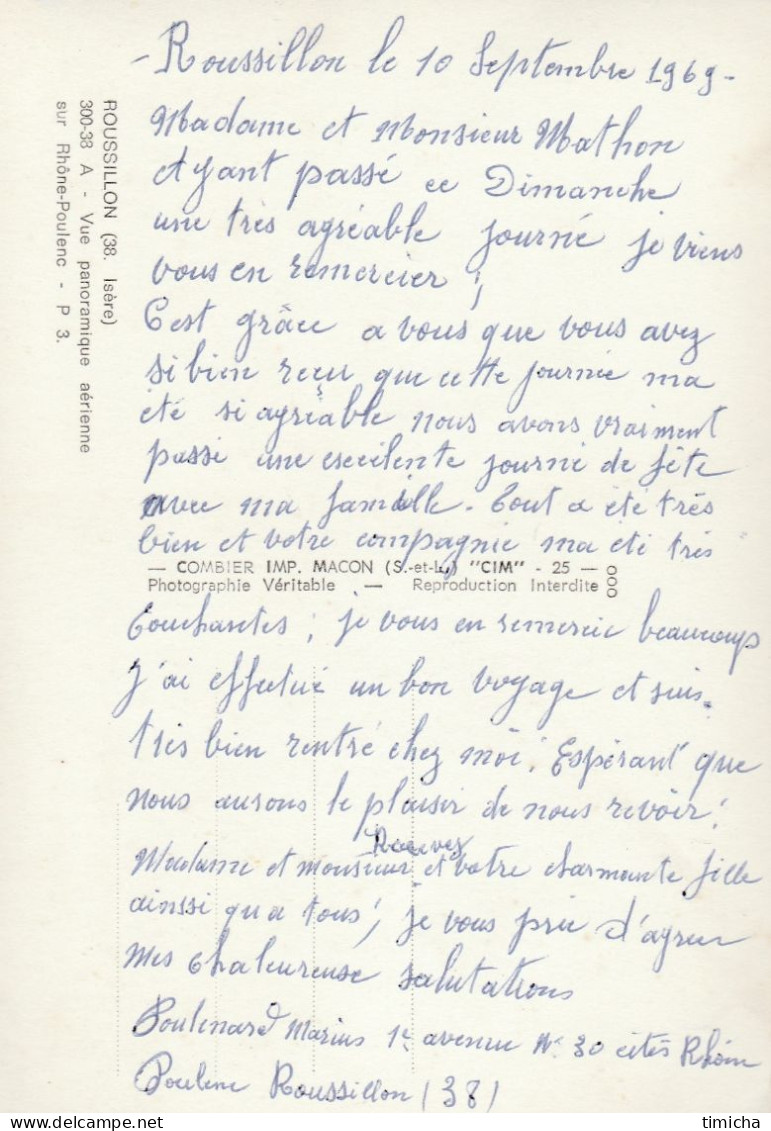 - Roussillon le 10 Septembre 1969 -
Madame et Monsieur Mathon
Ayant passé ce Dimanche
une très agréable journé je viens
vous en remercier ;
C'est grâce a vous que vous avez
si bien reçu que cette journée ma
été si agréable nous avons vraiment
passé une excellente journé de fête
avec ma famille. Tout a été très
bien et votre compagnie ma été très
— COMBIER IMP. MACON (S.-et-L.) "CIM" - 25 —
Photographie Véritable — Reproduction Interdite
touchantes ; je vous en remercie beaucoups
J'ai effectué un bon voyage et suis
très bien rentré chez moi. Espérant que
nous aurons le plaisir de nous revoir !
Recevez
Madame et monsieur et votre charmante fille
ainssi qu'a tous ; je vous prie d'agreer
Mes chaleureuse salutations
Poulenard Marius 1e avenue N° 30 cités Rhône
Poulenc Roussillon (38)
ROUSSILLON (38. Isère)
300-38 A - Vue panoramique aérienne
sur Rhône-Poulenc - P 3.
timicha